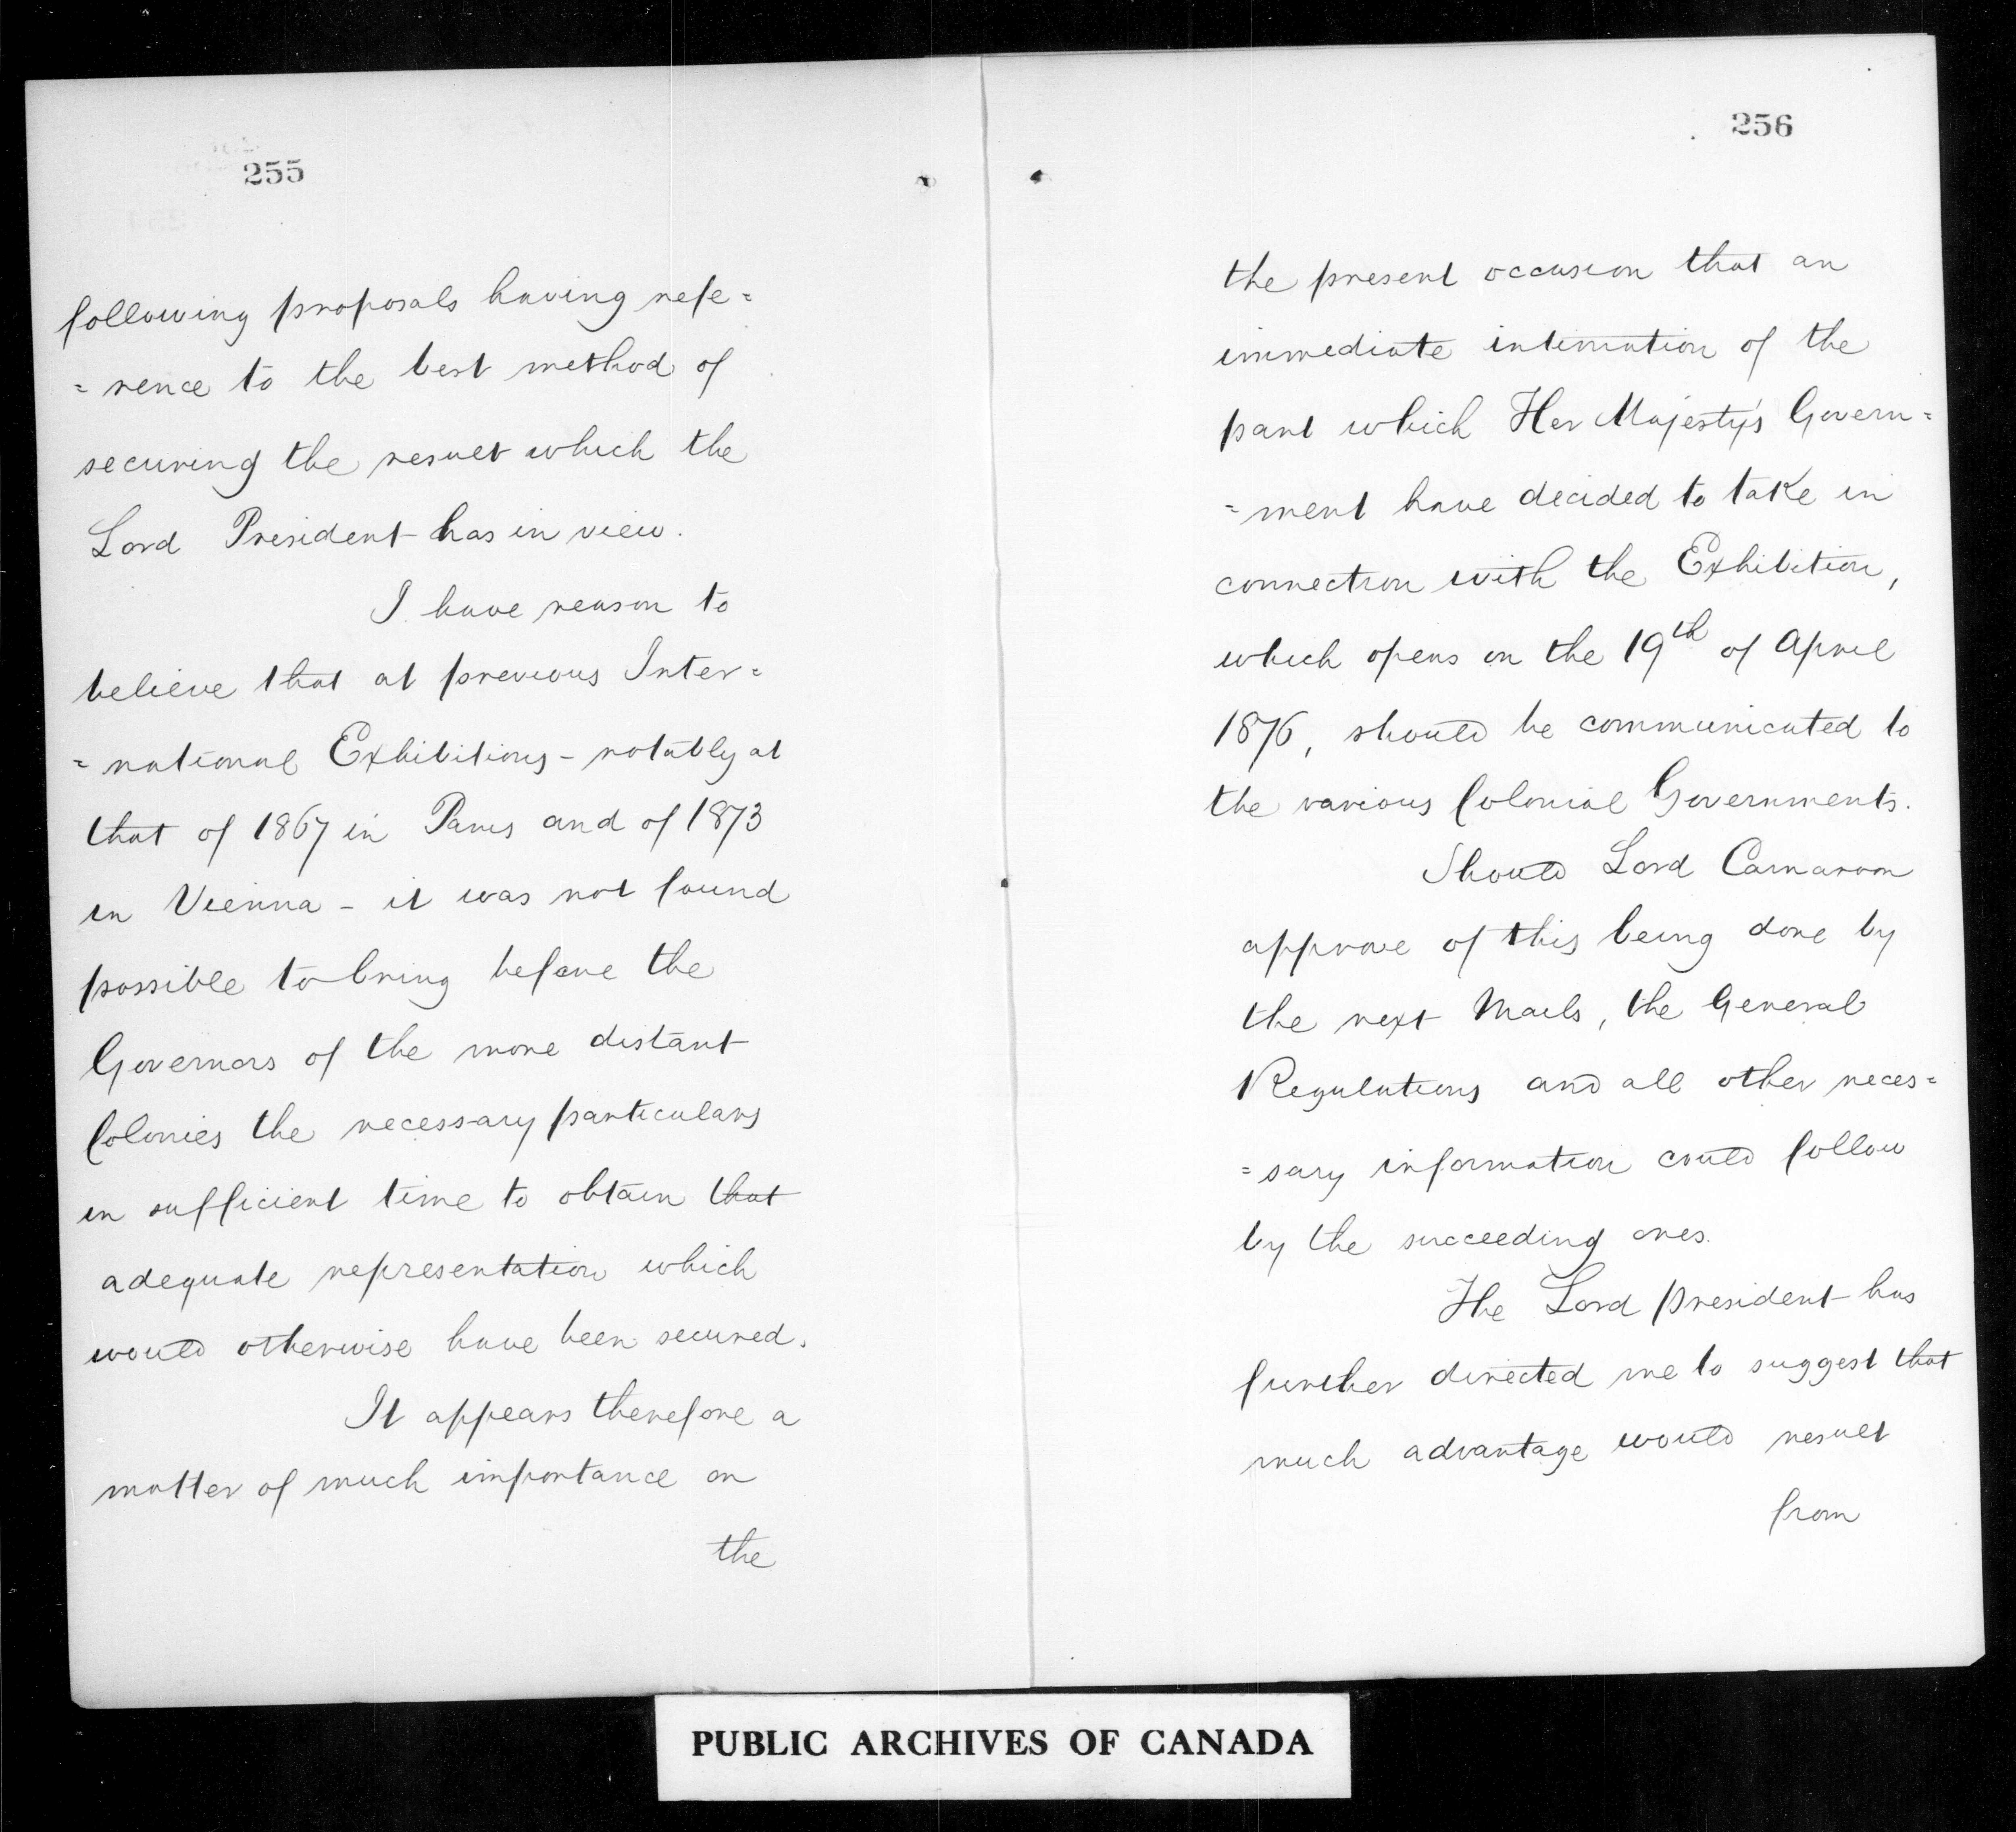 255
following proposals having refe=
=rence to the best method of
securing the result which the
Lord President has in view.
I have reason to
believe that at previous Inter=
=national Exhibitions - notably at
that of 1867 in Paris and of 1873
in Vienna - it was not found
possible to bring before the
Governors of the more distant
Colonies the necessary particulars
in sufficient time to obtain that
adequate representation which
would otherwise have been secured.
It appears therefore a
matter of much importance on
the
256
the present occasion that an
immediate intimation of the
part which Her Majesty's Govern=
=ment have decided to take in
connection with the Exhibition,
which opens on the 19th of April
1876, should be communicated to
the various Colonial Governments.
Should Lord Carnarvon
approve of this being done by
the next Mails, the General
Regulations and all other neces=
=sary information could follow
by the succeeding ones.
The Lord President has
further directed me to suggest that
much advantage would result
from
PUBLIC ARCHIVES OF CANADA